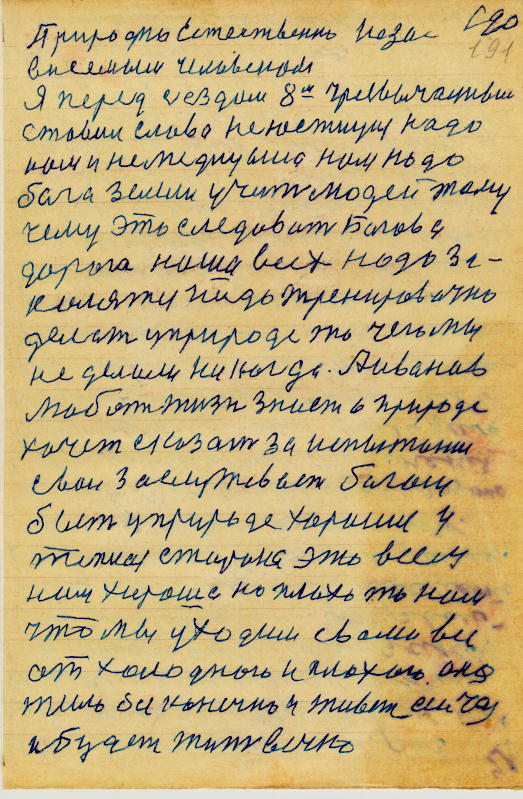 190
191
Природно Естественно неза
внеемым человеком
Я перед сездом 8м чрезвычайным
ставлю слова не
нам и немедлучи нам надо
бога Земли учит людей тому
чему это следоват Богова
дорога наша всех надо за-
тренировачно
делат у природе то чего мы
не делали никогда. Аиванов
любит жизн знает о природе
хочет сказат за испытании
свои заслуживает богом
быт у природе хороший и
тёплая сторона это всем
нам хороша но плохо то нам
что мы уходим с вами все
от холодного и плохого. оно
жило бесконечно и живет сейчас
и будет жит вечно